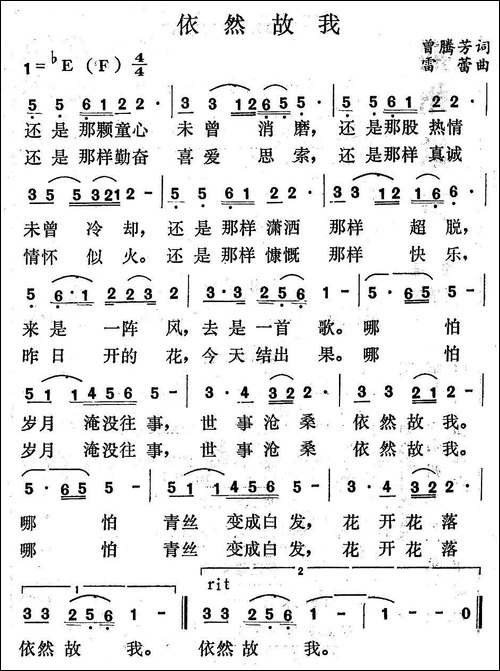 依然故我
曾腾芳词
1=♭E（F）4/4 雷蕾曲
5 5 6 1 2 2· | 3· 3 3 1 2 6 5 | 5 5 6 1 2 2·
还是那颗童心 未曾 消磨，还是那股热情
还是那样勤奋 喜爱 思索，还是那样真诚
3 5 5 3 2 1 2 - | 5 5 6 1 2 2· | 3 3 1 2 1 6 6·
未曾 冷却，还是那样潇洒 那样 超脱，
情怀 似火。还是那样慷慨 那样 快乐，
5 6·1 2 2 3 2 | 3·3 2 5 6 1 - | 5· 6 5 5 -
来是 一阵 风，去是一首 歌。哪 怕
昨日 开的 花，今天结出 果。哪 怕
5 1 1 4 5 6 5 - | 3· 4 3 2 2· | 3 3 2 1 2 -
岁月 淹没往事，世事沧桑 依然故我。
岁月 淹没往事，世事沧桑 依然故我。
5· 6 5 5 - | 5 1 1 4 5 6 5 - | 3· 4 3 2 2·
哪 怕 青丝 变成白发，花开花落
哪 怕 青丝 变成白发，花开花落
1 2
rit
3 3 2 5 6 1 - 3 3 2 5 6 1 - | 1 - - 0
依然故 我。依然故 我。